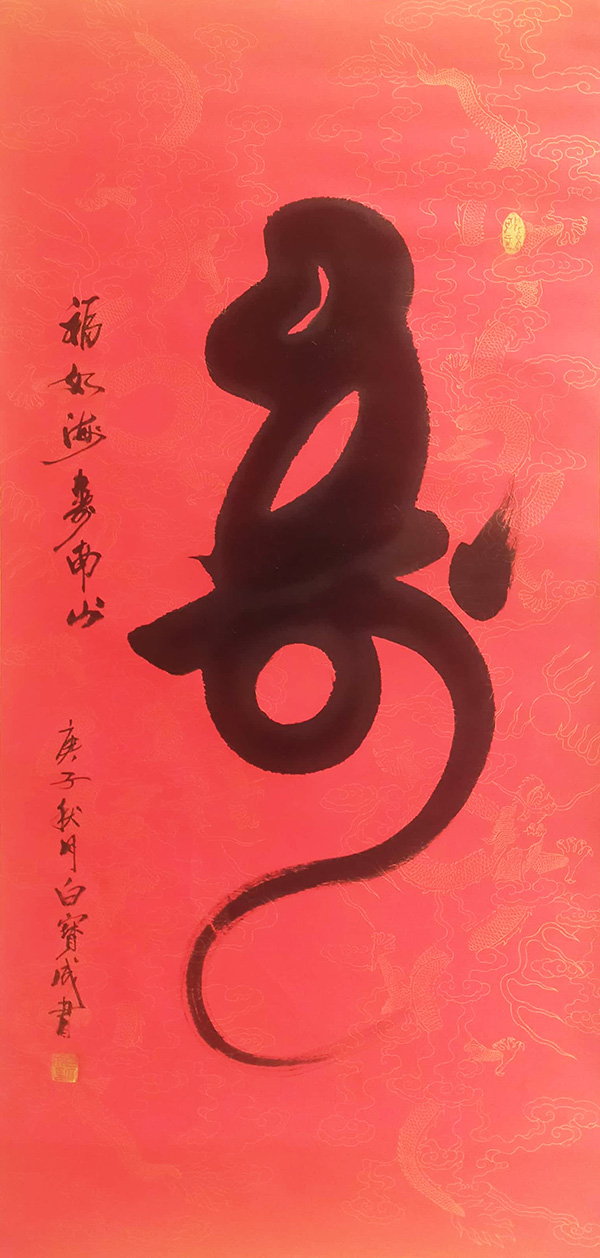 壽
福如海壽南山
庚子秋月白寶成書